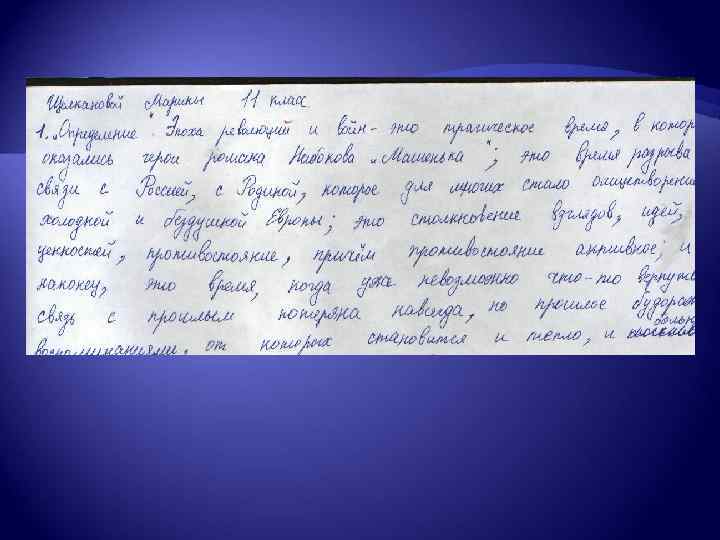 Щелкановой Марины 11 класс
1. „Определение". Эпоха революций и войн – это трагическое время, в котор
оказались герои романа Набокова „Машенька"; это время разрыва
связи с Россией, с Родиной, которое для многих стало олицетворени
холодной и бездушной Европы; это столкновение взглядов, идей,
ценностей, противостояние, причём противостояние активное; и
наконец, это время, когда уже невозможно что-то вернуть
связь с прошлым потеряна навсегда, но прошлое будораж
воспоминаниями, от которых становится и тепло, и больн